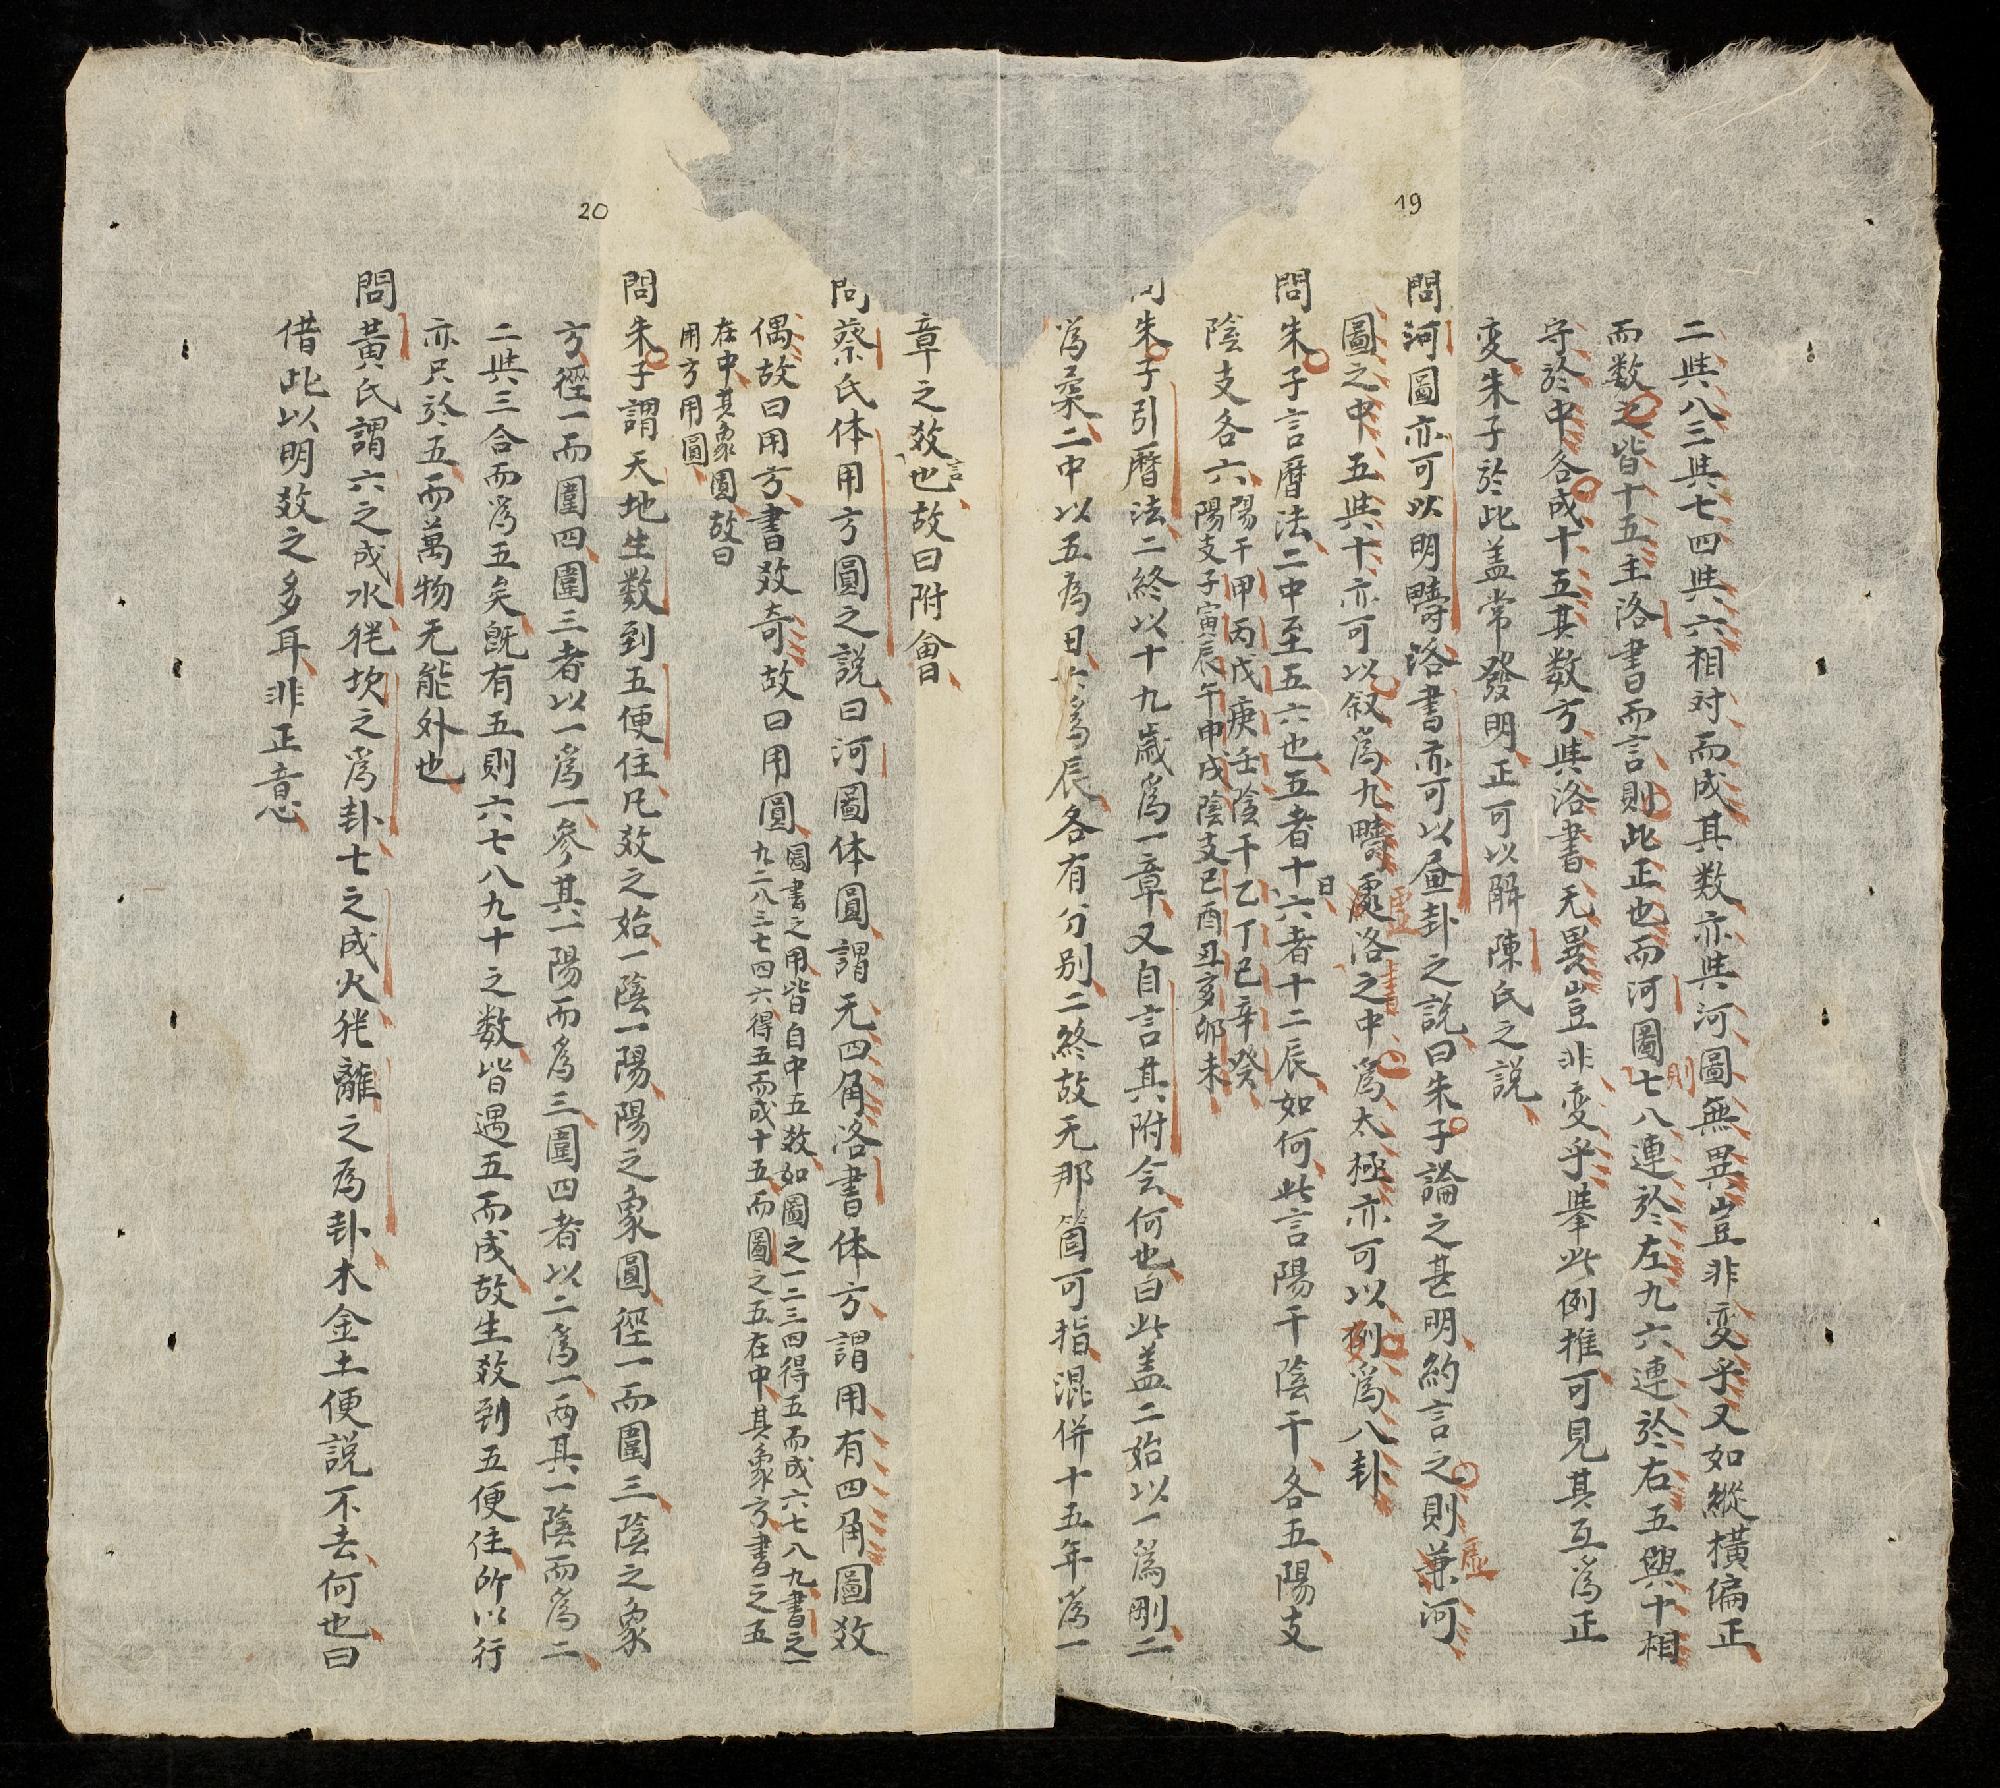 19
二共八三共七四共六相対而成其数亦共河圖無異豈非变乎又如縱橫偏正
而数之皆十五主洛書而言則此正也而河圖七八連於左九六連於右五與十相
則
守於中各成十五其数方共洛書无異豈非变乎举此例推可見其互為正
变朱子於此盖常發明正可以觧陳氏之説
問河圖亦可以明疇洛書亦可以画卦之説曰朱子論之甚明約言之則兼河
虛
圖之中五共十亦可以叙為九疇處洛之中為太極亦可以例為八卦
虛
書
問朱子言曆法二中至五六也五者十六者十二辰如何此言陽干陰干各五陽支
日
陰支各六陽干甲丙戊庚壬陰干乙丁己辛癸
陽支子寅辰午申戌陰支巳酉丑亥卯未
問朱子引曆法二終以十九歲為一章又自言其附会何也曰此盖二始以一為剛二
為柔二中以五為日六為辰各有分别二終故无那箇可指混併十五年為一
20
章之效也故曰附會
言
問蔡氏体用方圓之説曰河圖体圓謂无四角洛書体方謂用有四角圖效
偶故曰用方書效奇故曰用圓圖書之用皆自中五效如圖之一二三四得五而成六七八九書之一
九二八三七四六得五而成十五而圖之五在中其象方書之五
在中其象圓故曰
用方用圓
問朱子謂天地生数到五便住凡效之始一陰一陽陽之象圓徑一而圍三陰之象
方徑一而圍四圍三者以一為一參其一陽而為三圍四者以二為一兩其一陰而為二
二共三合而為五矣既有五則六七八九十之数皆遇五而成故生效到五便住所以行
亦只於五而萬物无能外也
問黃氏謂六之成水犹坎之為卦七之成火犹離之為卦木金土便説不去何也曰
借此以明效之多耳非正意